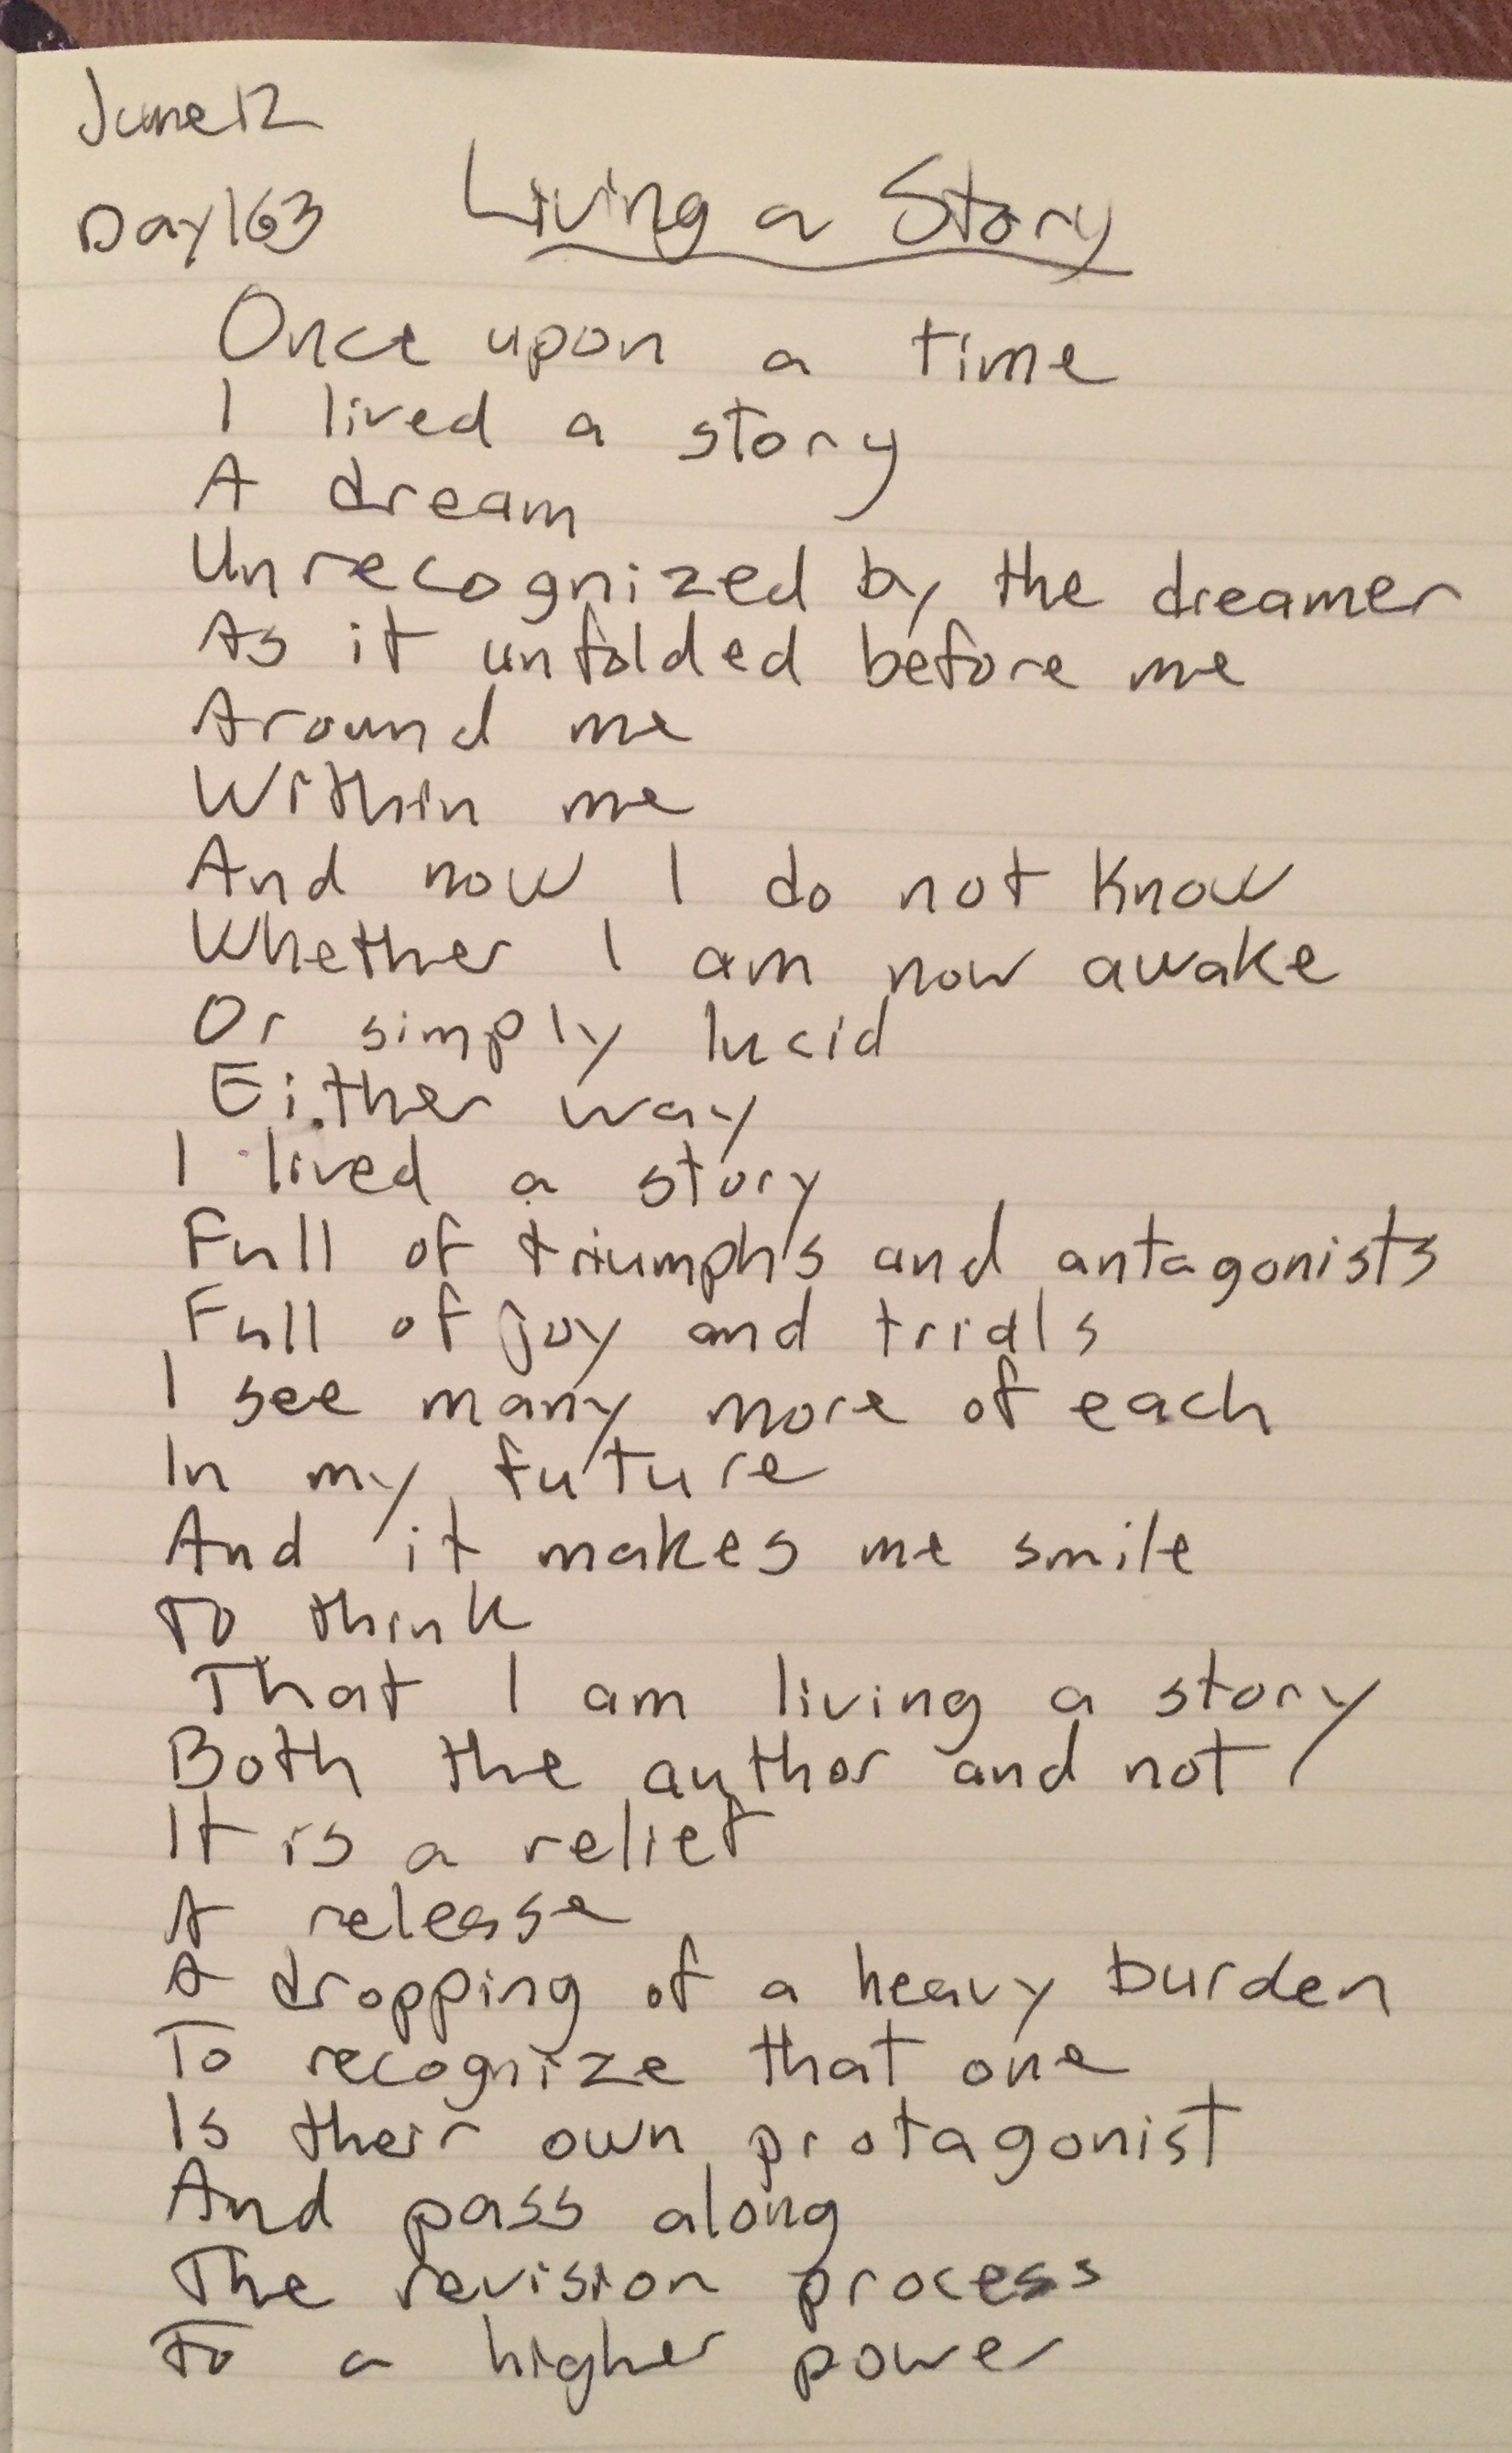 June 12
Day 163
Living a Story
Once upon a time
I lived a story
A dream
Unrecognized by the dreamer
As it unfolded before me
Around me
Within me
And now I do not know
Whether I am now awake
Or simply lucid
Either way
I lived a story
Full of triumphs and antagonists
Full of joy and trials
I see many more of each
In my future
And it makes me smile
To think
That I am living a story
Both the author and not
It is a relief
A release
A dropping of a heavy burden
To recognize that one
Is their own protagonist
And pass along
The revision process
To a higher power